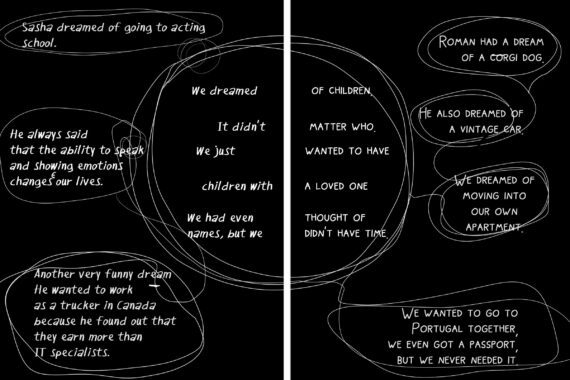 Sasha dreamed of going to acting
school.
He always said
that the ability to speak
and showing emotions
changes our lives.
Another very funny dream
He wanted to work
as a trucker in Canada
because he found out that
they earn more than
IT specialists.
We dreamed OF CHILDREN.
It didn't MATTER WHO.
We just WANTED TO HAVE
children with A LOVED ONE
We had even THOUGHT OF
names, but we DIDN'T HAVE TIME.
ROMAN HAD A DREAM
OF A CORGI DOG.
HE ALSO DREAMED OF
A VINTAGE CAR.
WE DREAMED OF
MOVING INTO
OUR OWN
APARTMENT.
WE WANTED TO GO TO
PORTUGAL TOGETHER,
WE EVEN GOT A PASSPORT,
BUT WE NEVER NEEDED IT.